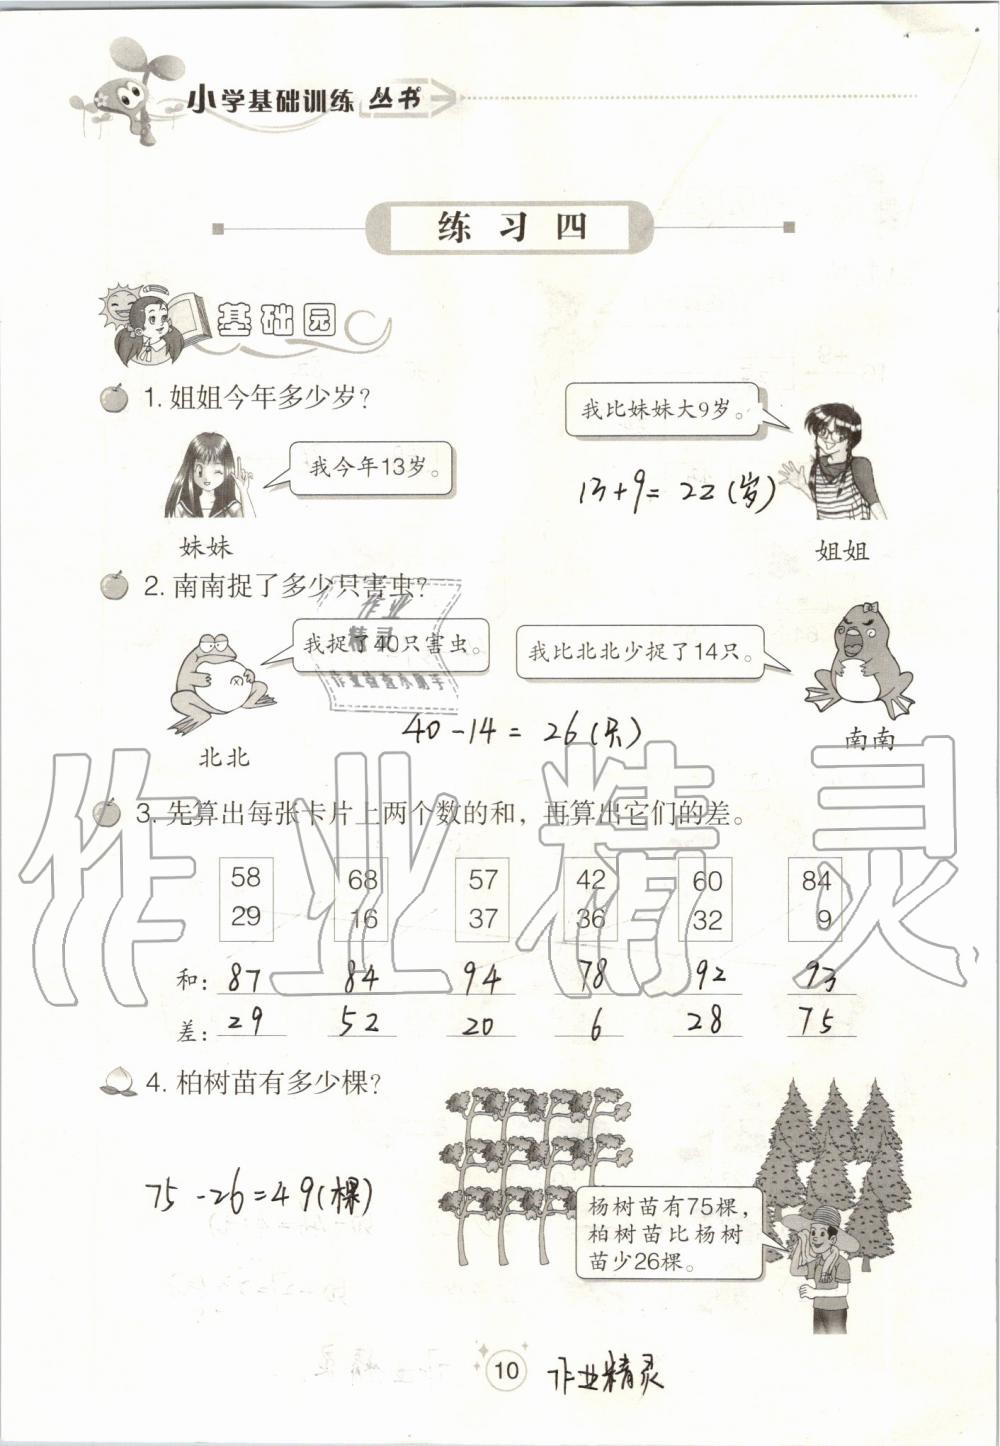 小学基础训练丛书
练习四
基础园
1. 姐姐今年多少岁?
我比妹妹大9岁。
我今年13岁。
13+9=22(岁)
妹妹
姐姐
2. 南南捉了多少只害虫?
作业
精灵
作业检查小助手
我捉了40只害虫。
我比北北少捉了14只。
40-14=26(只)
北北
南南
3. 先算出每张卡片上两个数的和，再算出它们的差。
58 68 57 42 60 84
29 16 37 36 32 9
和: 87 84 94 78 92 93
差: 29 52 20 6 28 75
作业精灵
4. 柏树苗有多少棵?
75-26=49(棵)
杨树苗有75棵，
柏树苗比杨树
苗少26棵。
10
作业精灵